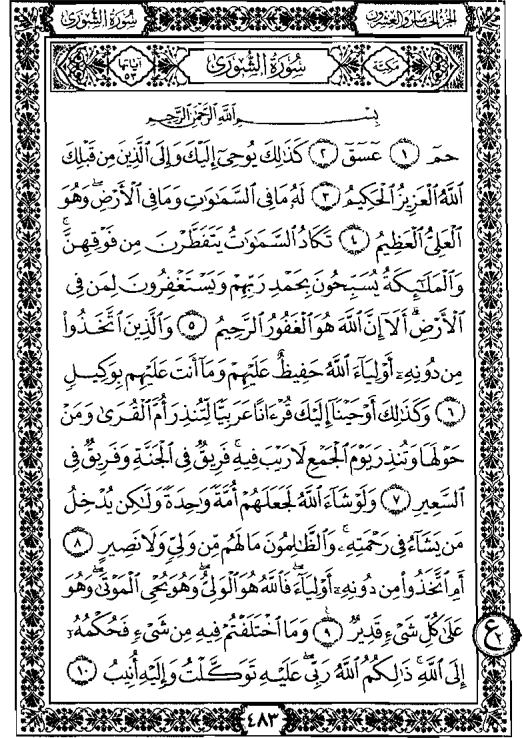 الجزء الخامس والعشرون
سُورَةُ الشُّورَىٰ
مكية
سُورَةُ الشُّورَىٰ
آياتها ٥٣
بِسْمِ اللَّهِ الرَّحْمَٰنِ الرَّحِيمِ
حمٓ ١ عٓسٓقٓ ٢ كَذَٰلِكَ يُوحِىٓ إِلَيْكَ وَإِلَى ٱلَّذِينَ مِن قَبْلِكَ
ٱللَّهُ ٱلْعَزِيزُ ٱلْحَكِيمُ ٣ لَهُۥ مَا فِى ٱلسَّمَٰوَٰتِ وَمَا فِى ٱلْأَرْضِ ۖ وَهُوَ
ٱلْعَلِىُّ ٱلْعَظِيمُ ٤ تَكَادُ ٱلسَّمَٰوَٰتُ يَتَفَطَّرْنَ مِن فَوْقِهِنَّ ۚ
وَٱلْمَلَٰٓئِكَةُ يُسَبِّحُونَ بِحَمْدِ رَبِّهِمْ وَيَسْتَغْفِرُونَ لِمَن فِى
ٱلْأَرْضِ ۗ أَلَآ إِنَّ ٱللَّهَ هُوَ ٱلْغَفُورُ ٱلرَّحِيمُ ٥ وَٱلَّذِينَ ٱتَّخَذُوا۟
مِن دُونِهِۦٓ أَوْلِيَآءَ ٱللَّهُ حَفِيظٌ عَلَيْهِمْ وَمَآ أَنتَ عَلَيْهِم بِوَكِيلٍ
٦ وَكَذَٰلِكَ أَوْحَيْنَآ إِلَيْكَ قُرْءَانًا عَرَبِيًّا لِّتُنذِرَ أُمَّ ٱلْقُرَىٰ وَمَنْ
حَوْلَهَا وَتُنذِرَ يَوْمَ ٱلْجَمْعِ لَا رَيْبَ فِيهِ ۚ فَرِيقٌ فِى ٱلْجَنَّةِ وَفَرِيقٌ فِى
ٱلسَّعِيرِ ٧ وَلَوْ شَآءَ ٱللَّهُ لَجَعَلَهُمْ أُمَّةً وَٰحِدَةً وَلَٰكِن يُدْخِلُ
مَن يَشَآءُ فِى رَحْمَتِهِۦ ۚ وَٱلظَّٰلِمُونَ مَا لَهُم مِّن وَلِىٍّ وَلَا نَصِيرٍ ٨
أَمِ ٱتَّخَذُوا۟ مِن دُونِهِۦٓ أَوْلِيَآءَ ۖ فَٱللَّهُ هُوَ ٱلْوَلِىُّ وَهُوَ يُحْىِ ٱلْمَوْتَىٰ وَهُوَ
عَلَىٰ كُلِّ شَىْءٍ قَدِيرٌ ٩ وَمَا ٱخْتَلَفْتُمْ فِيهِ مِن شَىْءٍ فَحُكْمُهُۥٓ
إِلَى ٱللَّهِ ۚ ذَٰلِكُمُ ٱللَّهُ رَبِّى عَلَيْهِ تَوَكَّلْتُ وَإِلَيْهِ أُنِيبُ ١٠
ع ٢
٤٨٣